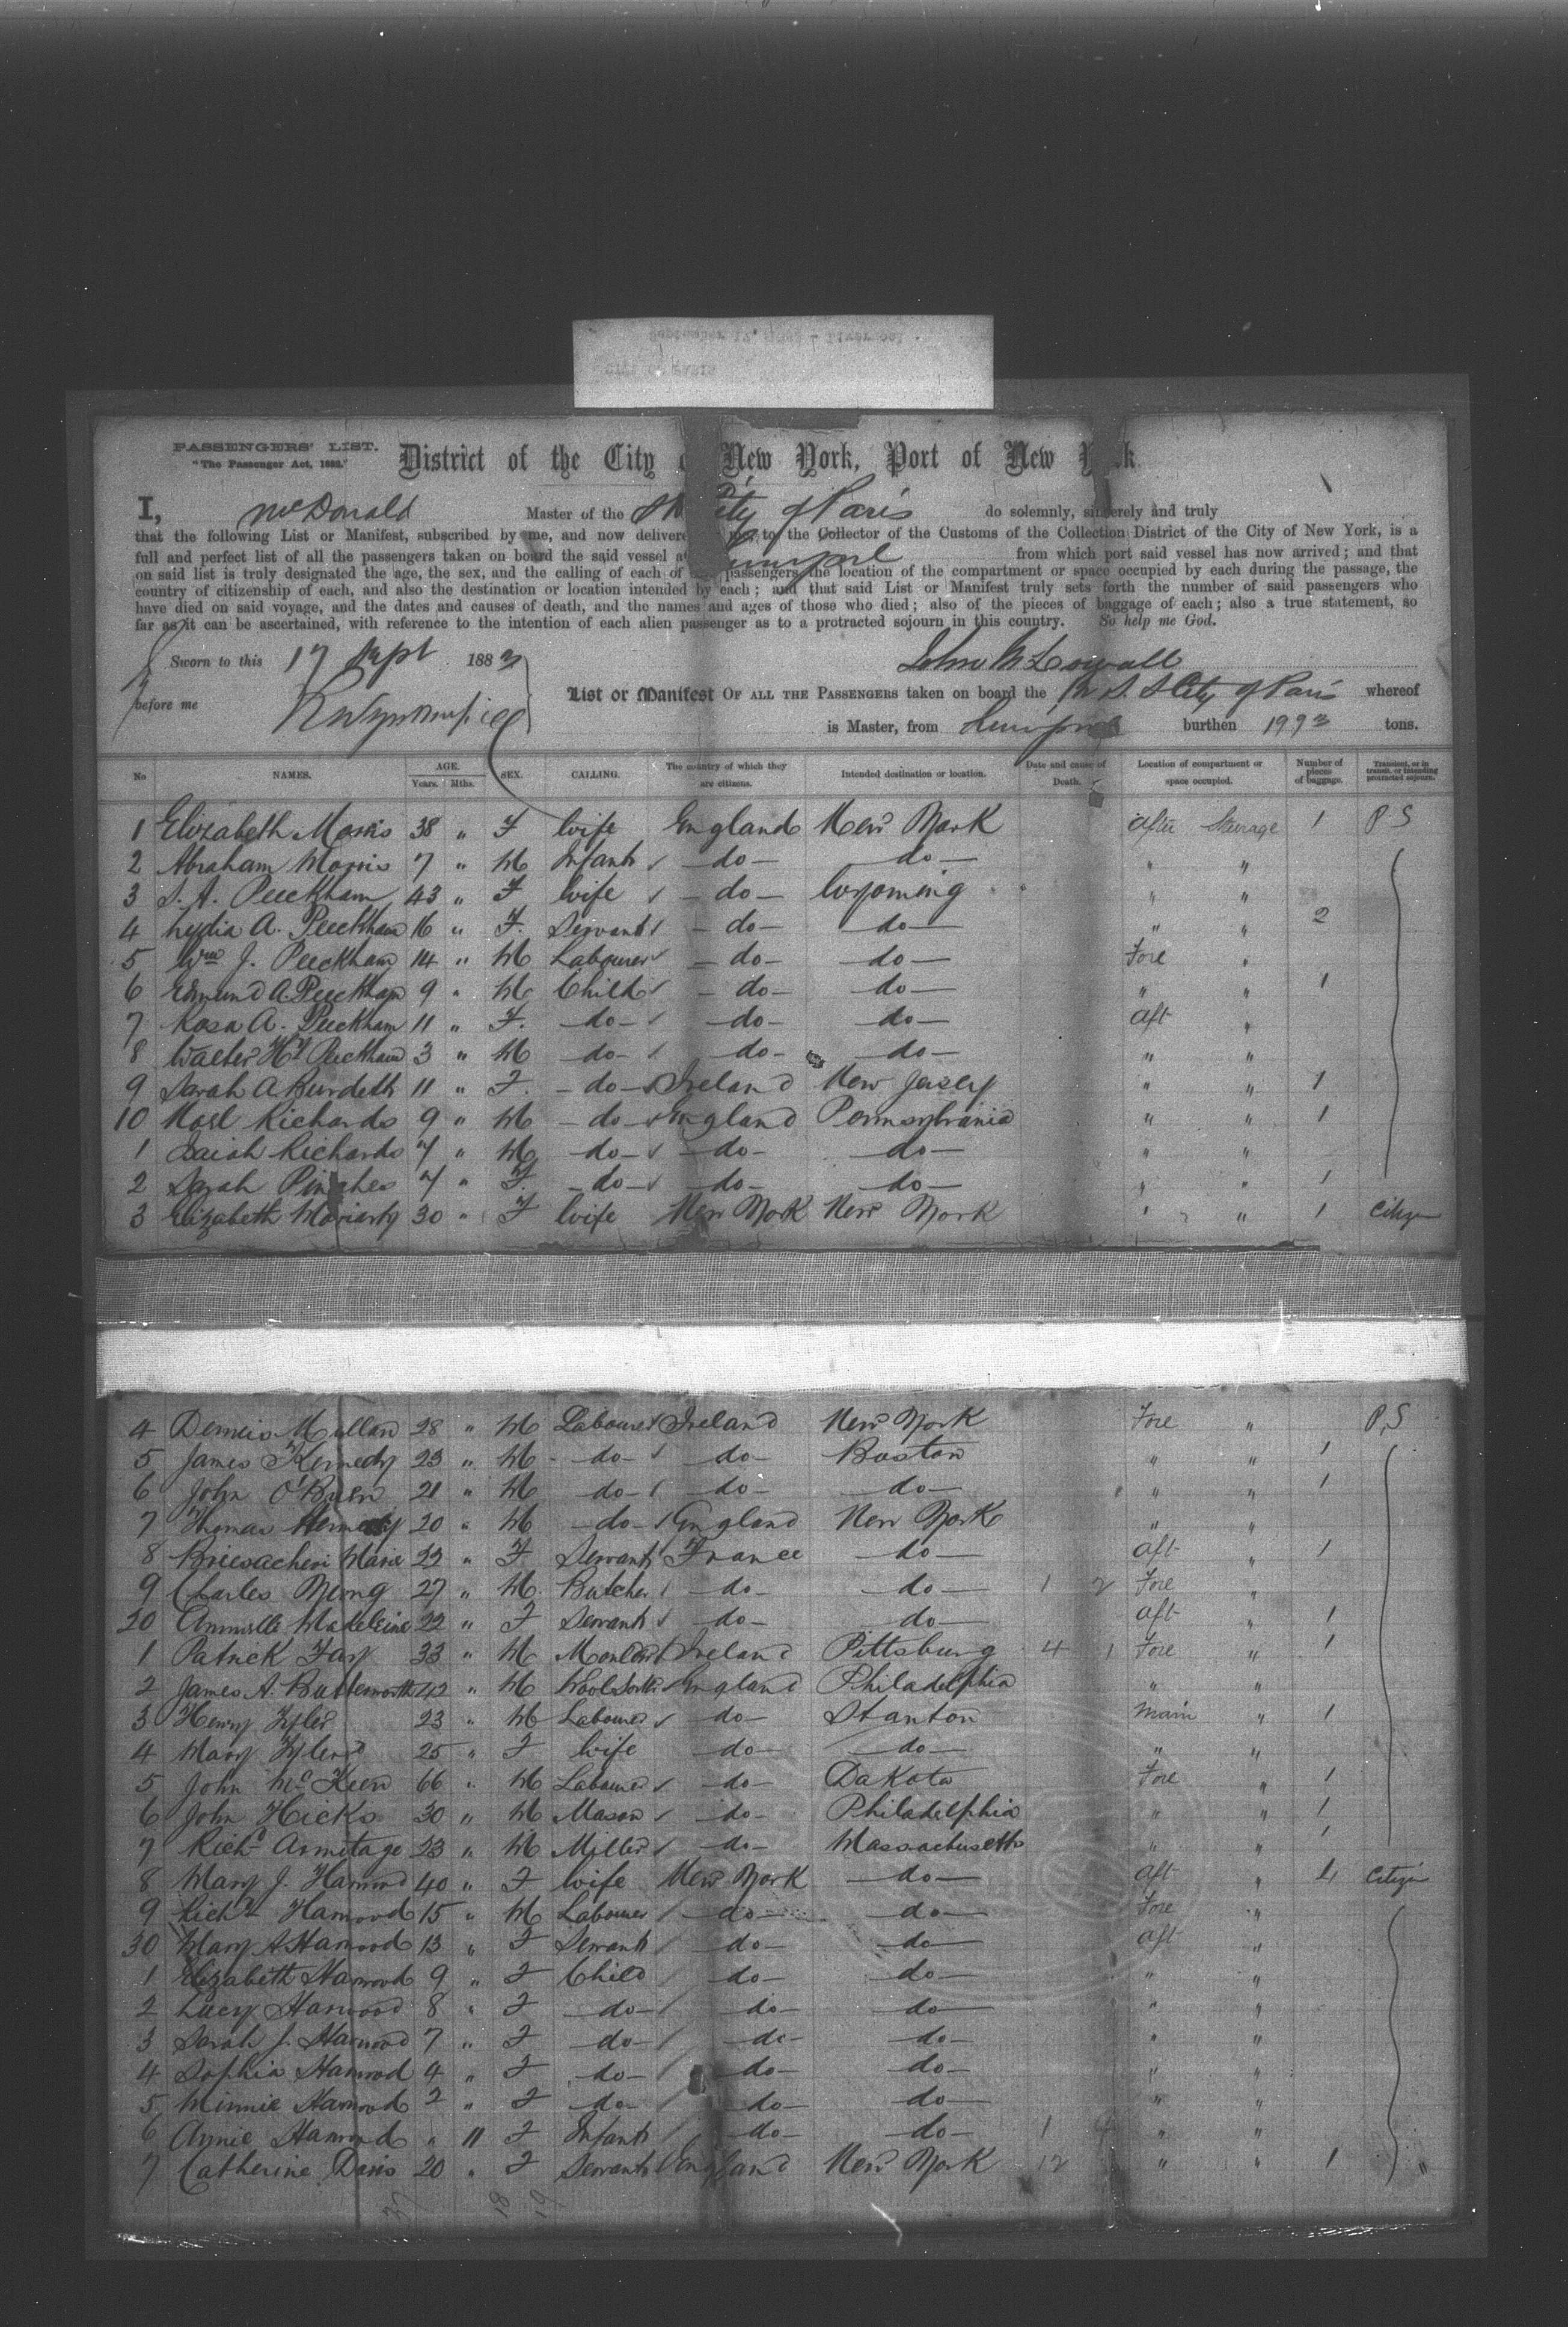 PASSENGERS' LIST.
"The Passenger Act, 1882."
District of the City New York, Port of New
I, McDonald Master of the City of Paris do solemnly, sincerely and truly
that the following List or Manifest, subscribed by me, and now to the Collector of the Customs of the Collection District of the City of New York, is a
full and perfect list of all the passengers taken on board the said vessel from which port said vessel has now arrived; and that
on said list is truly designated the age, the sex, and the calling of each of passengers, the location of the compartment or space occupied by each during the passage, the
country of citizenship of each, and also the destination or location intended by each; and that said List or Manifest truly sets forth the number of said passengers who
have died on said voyage, and the dates and causes of death, and the names and ages of those who died; also of the pieces of baggage of each; also a true statement, so
far as it can be ascertained, with reference to the intention of each alien passenger as to a protracted sojourn in this country. So help me God.
Sworn to this 17 Sept 1883
before me
List or Manifest OF ALL THE PASSENGERS taken on board the City of Paris whereof
is Master, from burthen 1993 tons.
No NAMES. AGE. Years. Mths. SEX. CALLING. The country of which they are citizens. Intended destination or location. Date and cause of Death. Location of compartment or space occupied. Number of pieces of baggage. Transient, or in transit, or intending protracted sojourn.
1 Elizabeth Morris 38 " F Wife England New York After Steerage 1 P S
2 Abraham Morris 7 " M Infant -do- -do- " "
3 S. A. Peeckham 43 " F Wife -do- Wyoming " "
4 Lydia A. Peeckham 16 " F. Servant -do- -do- " " 2
5 Wm J. Peeckham 14 " M Labourer -do- -do- Fore "
6 Edmund A. Peeckham 9 " M Child -do- -do- " " 1
7 Rosa A. Peeckham 11 " F. -do- -do- -do- Aft "
8 Walter Hy Peeckham 3 " M -do- -do- -do- " "
9 Sarah A Burdett 11 " F. -do- Ireland New Jersey " " 1
10 Richards 9 " M -do- England Pennsylvania " " 1
1 Isaiah Richards 7 " M -do- -do- -do- " "
2 Sarah 7 " F. -do- -do- -do- " " 1
3 Elizabeth Moriarty 30 " F Wife New York New York " " 1 Citizen
4 Dennis Mullan 28 " M Labourer Ireland New York Fore " P.S
5 James Kennedy 23 " M -do- -do- Boston " " 1
6 John O'Brien 21 " M -do- -do- -do- " " 1
7 Thomas 20 " M -do- England New York " "
8 Marie 22 " F Servant France -do- Aft " 1
9 Charles 27 " M Butcher -do- -do- 1 2 Fore "
20 Madeleine 22 " F Servant -do- -do- Aft " 1
1 Patrick Fay 33 " M Ireland Pittsburg 4 1 Fore " 1
2 James A. Butterworth 42 " M England Philadelphia " "
3 Henry Tyler 23 " M Labourer -do- Stanton Main " 1
4 Mary Tyler 25 " F Wife -do- -do- " "
5 John McKeen 66 " M Labourer -do- Dakota Fore " 1
6 John Hicks 30 " M Mason -do- Philadelphia " " 1
7 Richd Armitage 23 " M Miller -do- Massachusetts " " 1
8 Mary J. Harwood 40 " F Wife New York -do- Aft " 4 Citizen
9 Richd Harwood 15 " M Labourer -do- -do- Fore "
30 Mary A Harwood 13 " F Servant -do- -do- Aft "
1 Elizabeth Harwood 9 " F Child -do- -do- " "
2 Lucy Harwood 8 " F -do- -do- -do- " "
3 Sarah J. Harwood 7 " F -do- -do- -do- " "
4 Sophia Harwood 4 " F -do- -do- -do- " "
5 Minnie Harwood 2 " F -do- -do- -do- " "
6 Annie Harwood " 11 F Infant -do- -do- 1 " "
7 Catherine Davis 20 " F Servant England New York 12 " " 1 "
37 18 19